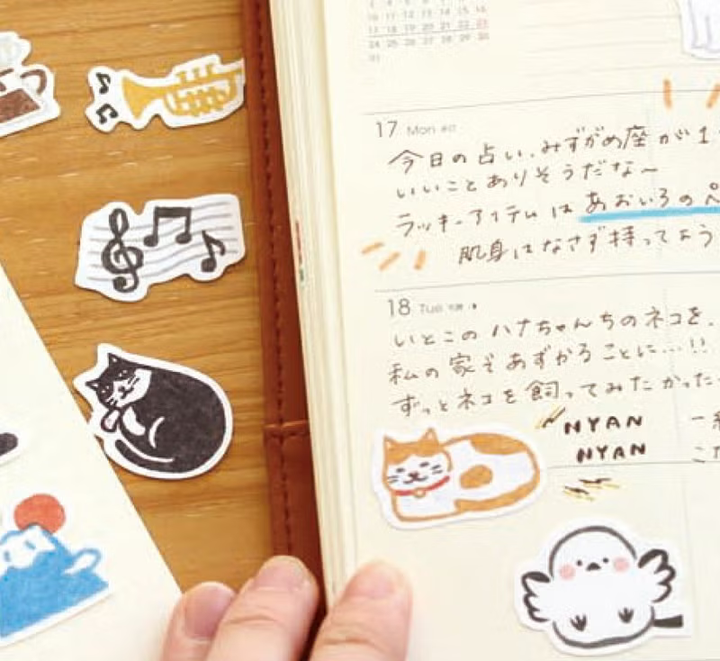 10 11 12 13 14 15 16
17 18 19 20 21 22 23
24 25 26 27 28 29 30
31
17 Mon
今日の占い、みずがめ座が1
いいことありそうだな〜
ラッキーアイテムは あおいろのペ
肌身はなさず持ってよう
18 Tue
いとこのハナちゃんちのネコを、
私の家であずかることに…!!
ずっとネコを飼ってみたかった
NYAN
NYAN
一
こ